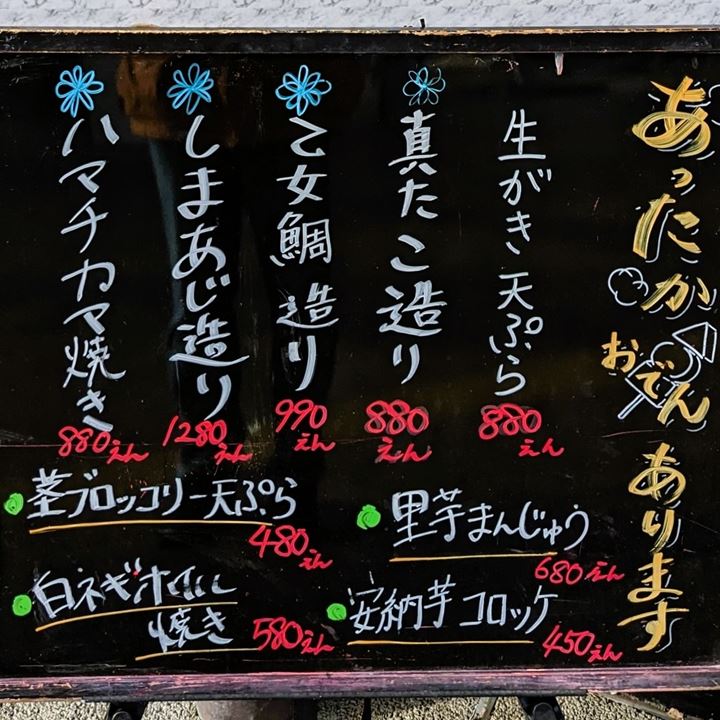 あったか
おでん
あります
生がき天ぷら
880
えん
真たこ造り
880
えん
乙女鯛造り
990
えん
しまあじ造り
1280えん
ハマチカマ焼き
880えん
里芋まんじゅう
680えん
安納芋コロッケ
450えん
茎ブロッコリー天ぷら
480えん
白ネギホイル
焼き
580えん